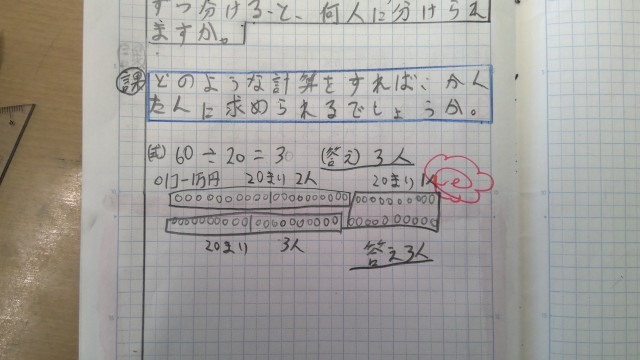 ずつ分けると、何人に分けられ
ますか。
課 どのような計算をすれば、かん
たんに求められるでしょうか。
(式) 60÷20=30 (答え) 3人
20まい 2人 20まい 1人
20まい 3人
答え3人